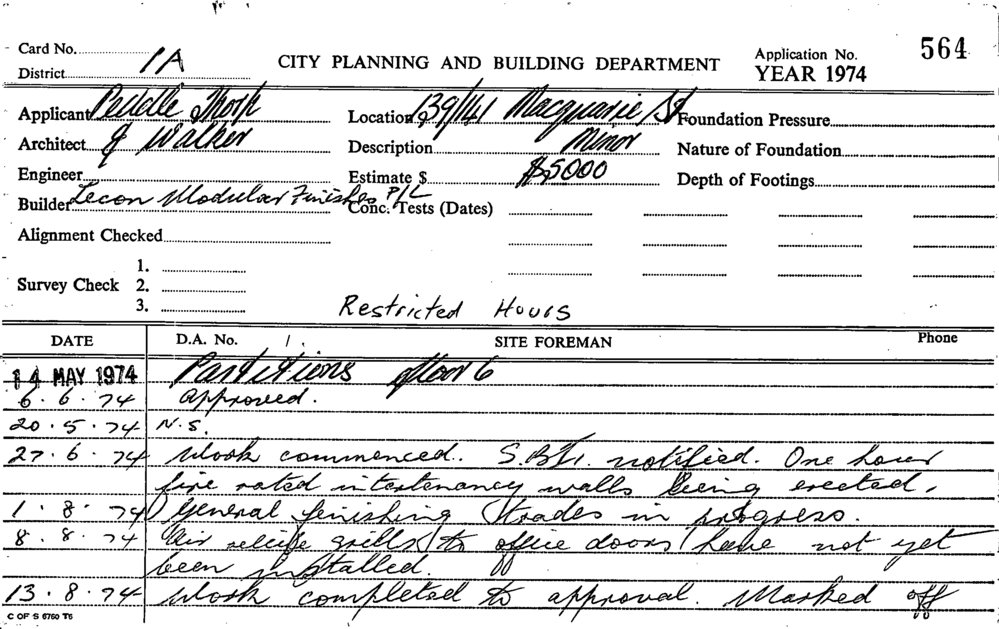 Card No.
District 1A
CITY PLANNING AND BUILDING DEPARTMENT
Application No. 564
YEAR 1974
Applicant Peddle Thorp
Architect & Walker
Engineer
Builder Lecon Modular Finishes P/L
Alignment Checked
Survey Check 1.
2.
3.
Location 139/141 Macquarie St
Description Minor
Estimate $ $5000
Conc. Tests (Dates)
Foundation Pressure
Nature of Foundation
Depth of Footings
Restricted Hours
DATE D.A. No. SITE FOREMAN Phone
14 MAY 1974 Partitions floor 6
6.6.74 Approved.
20.5.74 N.S.
27.6.74 Work commenced. notified. One hour
fire rated intertenancy walls being erected.
1.8.74 General finishing trades in progress.
8.8.74 Air grills to office doors have not yet
been installed.
13.8.74 Work completed to approval. Marked off
C OF S 6760 T6